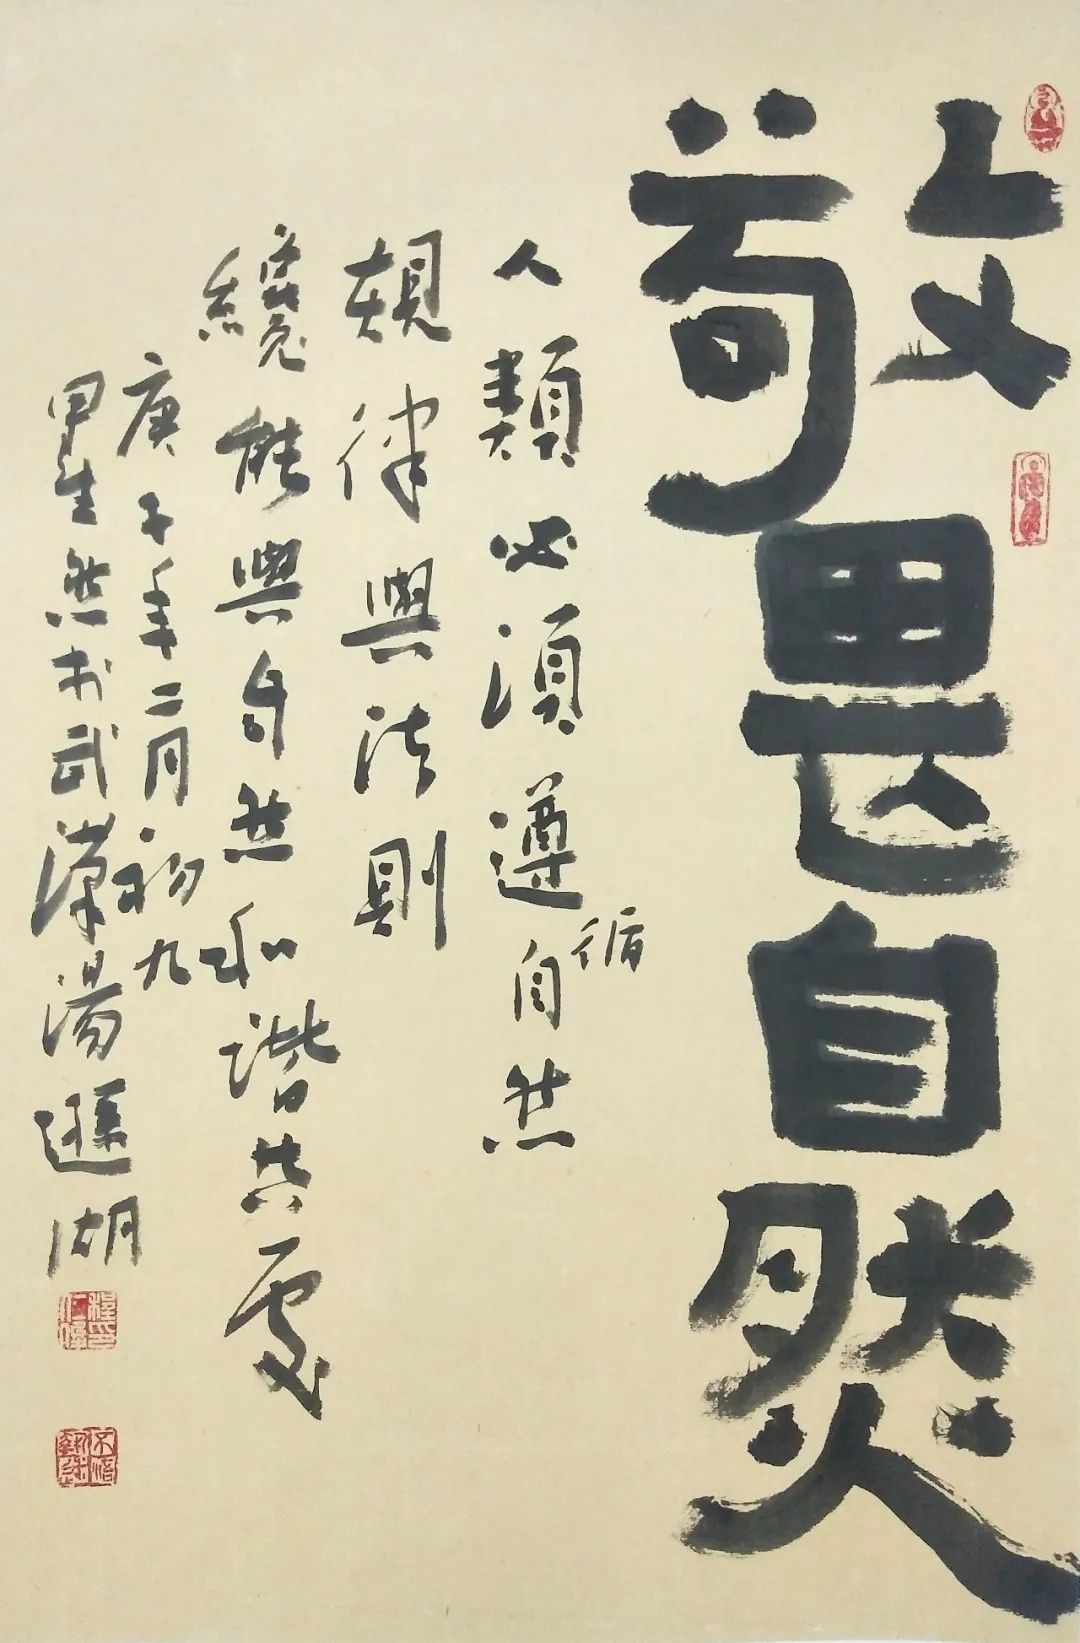 敬畏自然
人類必須遵循自然
規律與法則
纔能與自然和諧共處
庚子年二月初九
甲生然於武漢湯遜湖